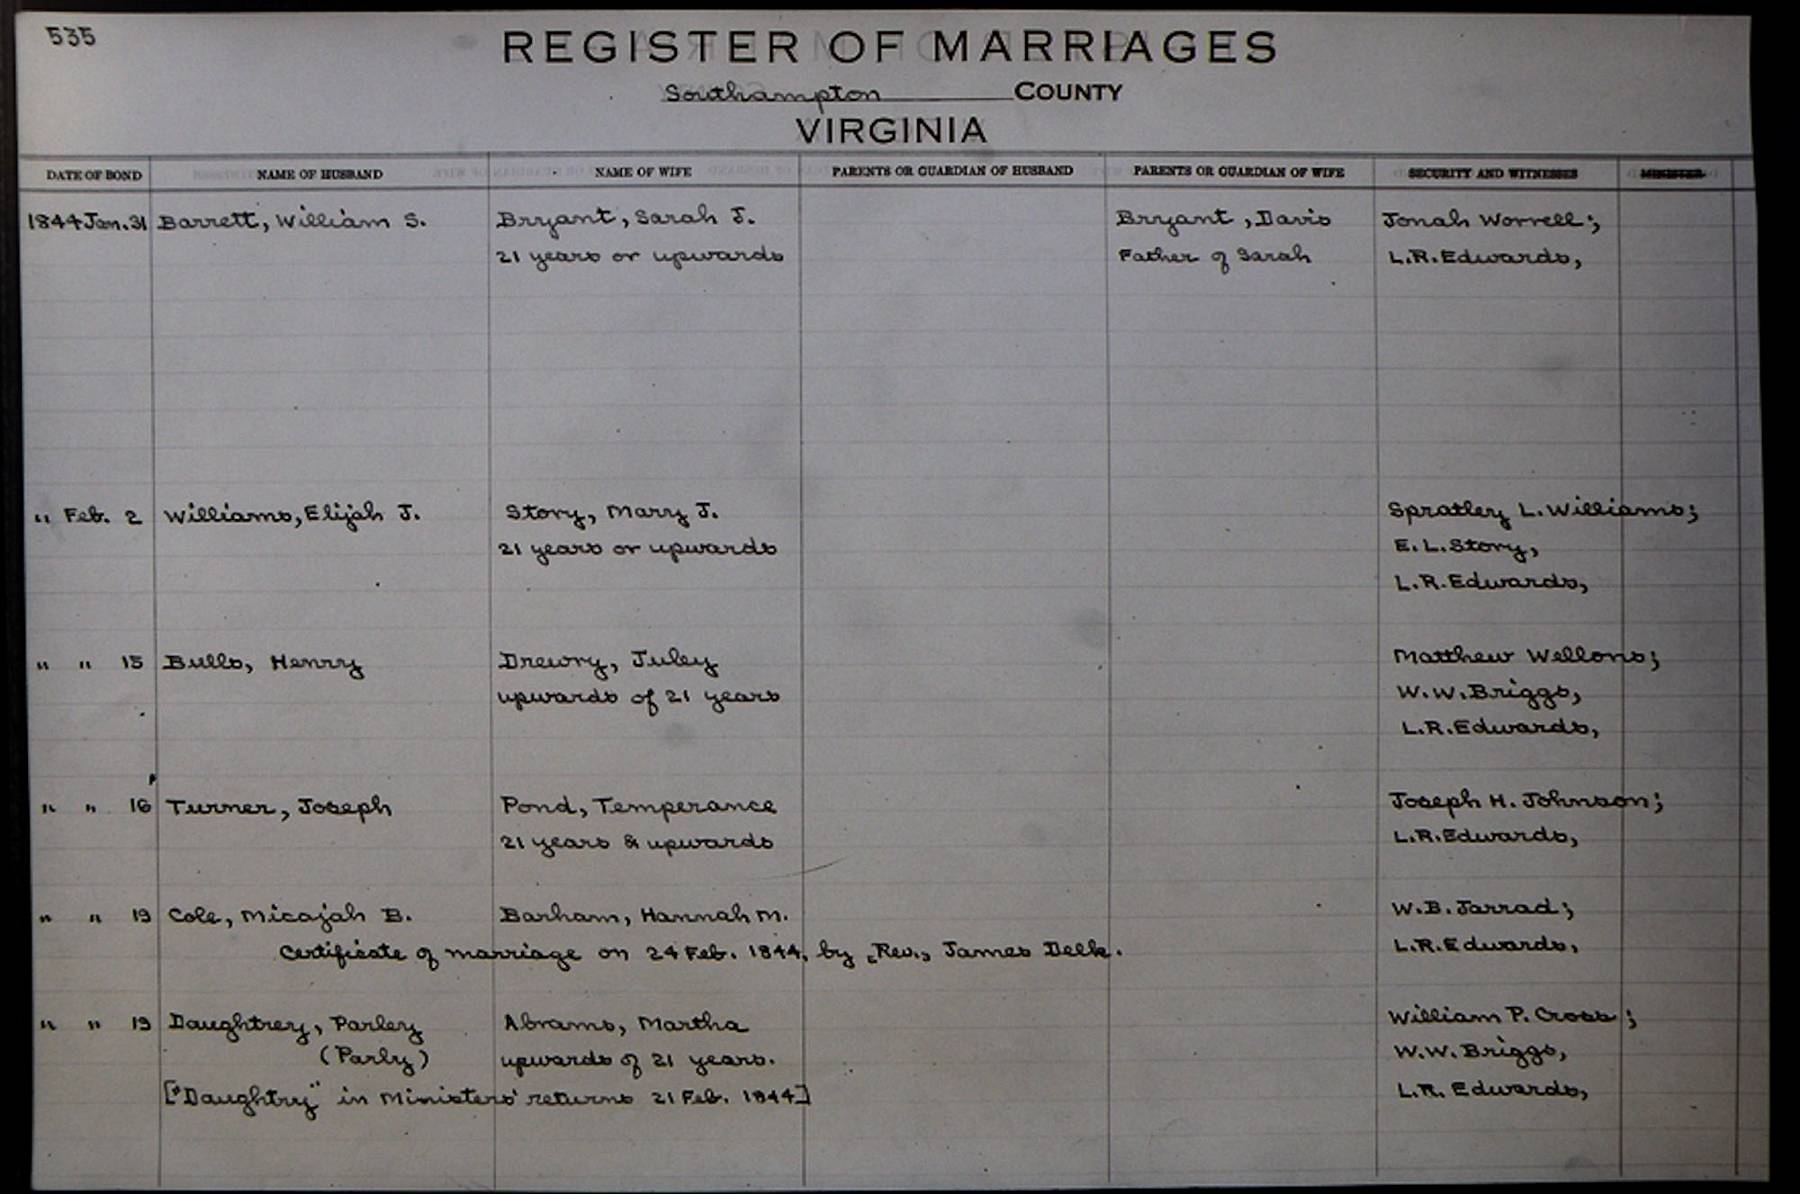 535
REGISTER OF MARRIAGES
Southampton COUNTY
VIRGINIA
DATE OF BOND NAME OF HUSBAND NAME OF WIFE PARENTS OR GUARDIAN OF HUSBAND PARENTS OR GUARDIAN OF WIFE SECURITY AND WITNESSES MINISTER
1844 Jan. 31 Barrett, William S. Bryant, Sarah J. Bryant, Davis Jonah Worrell;
21 years or upwards Father of Sarah L.R. Edwards,
" Feb. 2 Williams, Elijah J. Story, Mary J. Spratley L. Williams;
21 years or upwards E. L. Story,
L.R. Edwards,
" " 15 Bulls, Henry Drewry, Juley Matthew Wellons;
upwards of 21 years W. W. Briggs,
L.R. Edwards,
" " 16 Turner, Joseph Pond, Temperance Joseph H. Johnson;
21 years & upwards L.R. Edwards,
" " 19 Cole, Micajah B. Barham, Hannah M. W.B. Jarrad;
Certificate of marriage on 24 Feb. 1844, by [Rev.] James Delk. L.R. Edwards,
" " 19 Daughtrey, Parley Abrams, Martha William P. Cross;
(Parly) upwards of 21 years. W.W. Briggs,
["Daughtry" in Ministers' returns 21 Feb. 1844] L.R. Edwards,